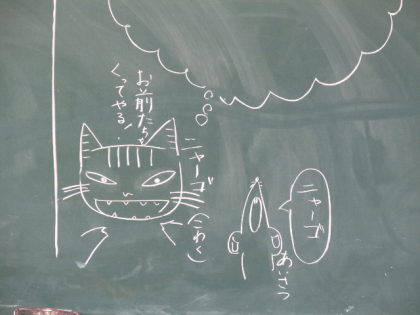 お前たちを
くってやる!
ニャーゴ
(こわく)
ニャーゴ
あいさつ